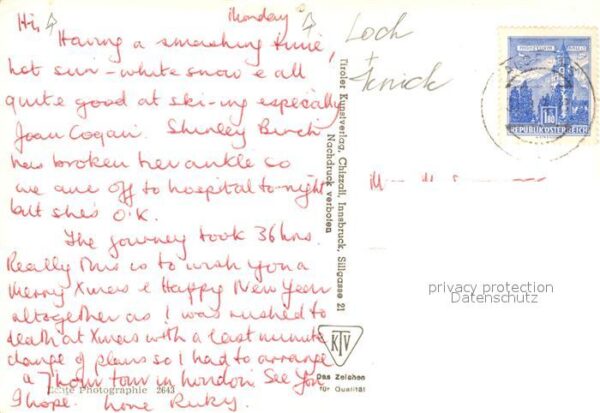 Monday
Hi,
Having a smashing time,
hot sun - white snow & all
quite good at ski-ing especially
Joan Cogan. Shirley Birch
has broken her ankle so
we are off to hospital to-night
but she's O.K.
The journey took 36 hrs.
Really this is to wish you a
Merry Xmas & Happy New Year
altogether as I was rushed to
death at Xmas with a last minute
change of plans so I had to arrange
a 7 hour tour in London. See you
I hope. Love
Loch
+
Tiroler Kunstverlag, Chizzali, Innsbruck, Sillgasse 21
Nachdruck verboten
REPUBLIK ÖSTERREICH
1.80
privacy protection
Datenschutz
KTV
Das Zeichen
für Qualität
Echte Photographie 2643